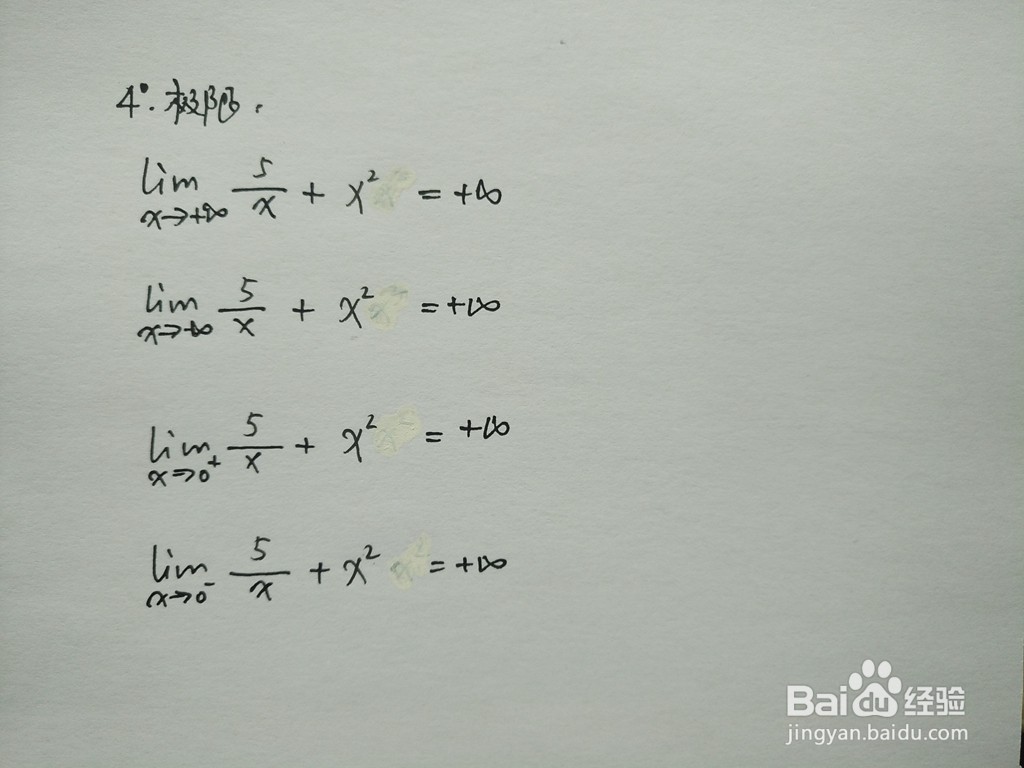 4°. 极限.
lim x→+∞ 5/x + x² = +∞
lim x→-∞ 5/x + x² = +∞
lim x→0⁺ 5/x + x² = +∞
lim x→0⁻ 5/x + x² = +∞
Baidu经验
jingyan.baidu.com